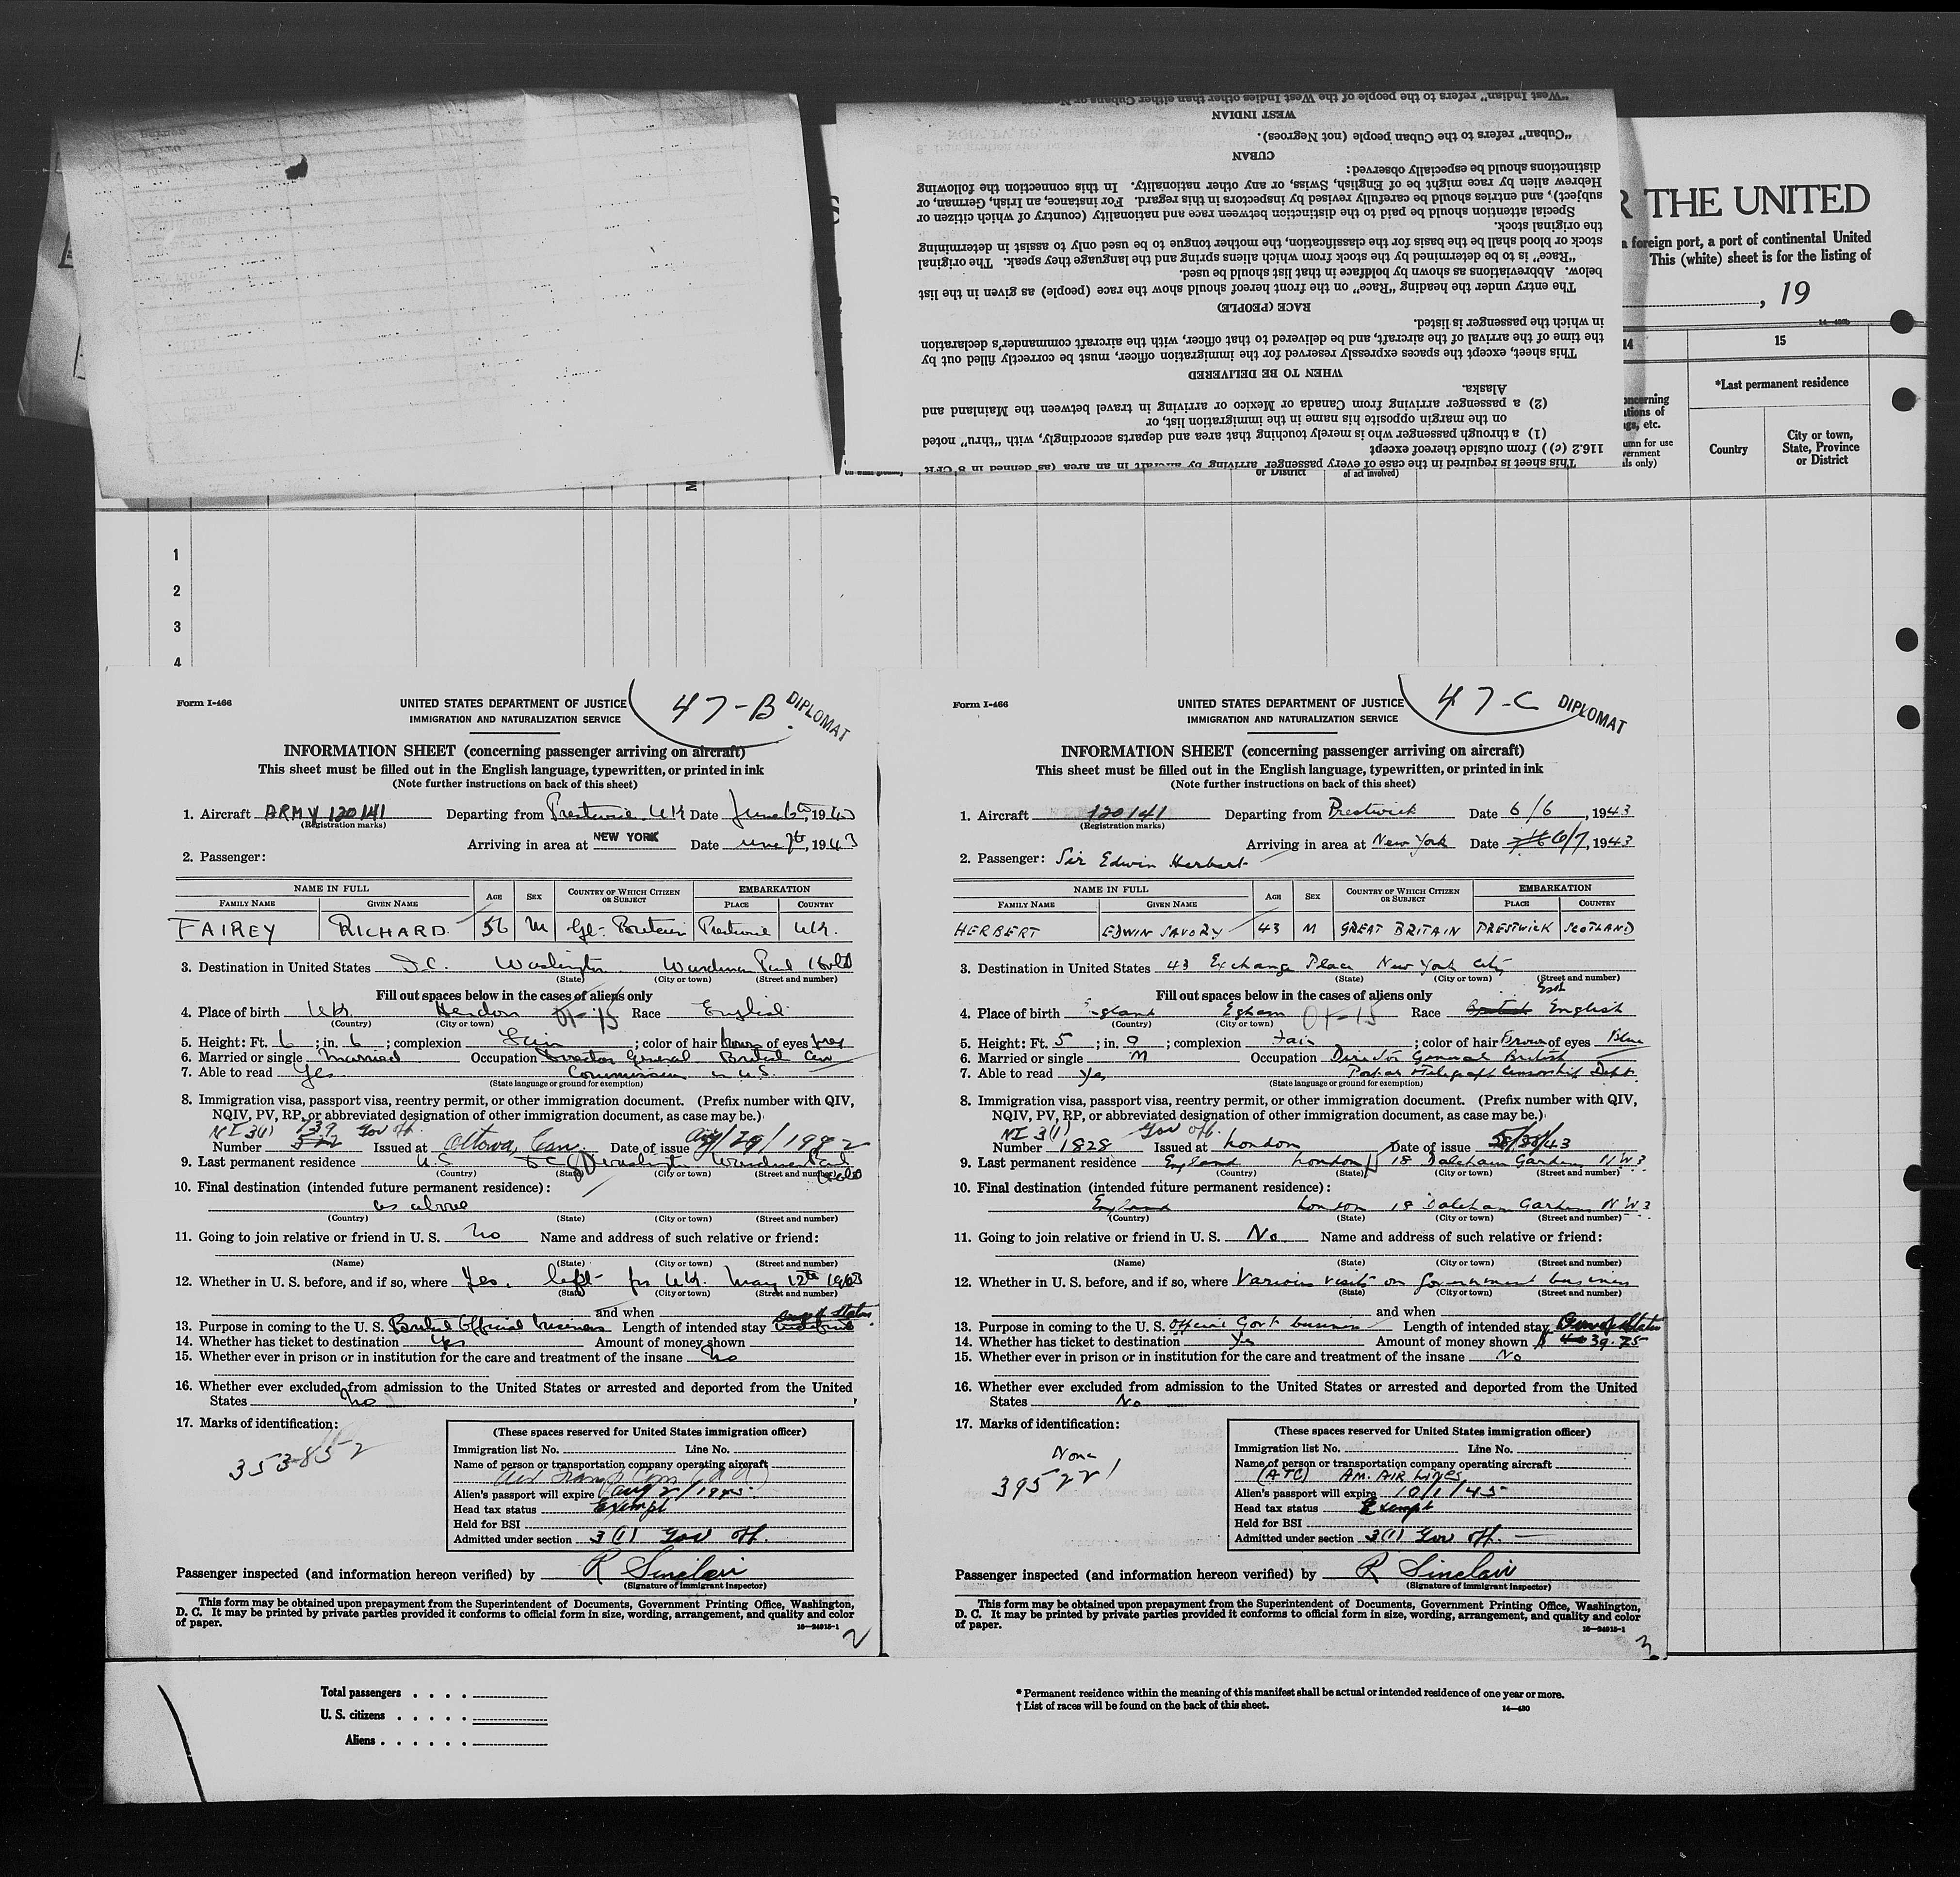 "West Indian" refers to the people of the West Indies other than either Cubans or
WEST INDIAN
"Cuban" refers to the Cuban people (not Negroes).
CUBAN
distinctions should be especially observed:
Hebrew alien by race might be of English, Swiss, or any other nationality. In this connection the following
subject), and entries should be carefully revised by inspectors in this regard. For instance, an Irish, German, or
Special attention should be paid to the distinction between race and nationality (country of which citizen or
the original stock.
stock or blood shall be the basis for the classification, the mother tongue to be used only to assist in determining
"Race" is to be determined by the stock from which aliens spring and the language they speak. The original
below. Abbreviations as shown by boldface in that list should be used.
The entry under the heading "Race" on the front hereof should show the race (people) as given in the list
RACE (PEOPLE)
in which the passenger is listed.
the time of the arrival of the aircraft, and be delivered to that officer, with the aircraft commander's declaration
This sheet, except the spaces expressly reserved for the immigration officer, must be correctly filled out by
WHEN TO BE DELIVERED
Alaska.
(2) a passenger arriving from Canada or Mexico or arriving in travel between the Mainland and
on the margin opposite his name in the immigration list, or
(1) a through passenger who is merely touching that area and departs accordingly, with "thru" noted
116.2 (c) ) from outside thereof except
This sheet is required in the case of every passenger arriving by aircraft in an area (as defined in 8 CFR
or District
of act involved)
R THE UNITED
a foreign port, a port of continental United
This (white) sheet is for the listing of
, 19
14
15
*Last permanent residence
Country
City or town, State, Province or District
1
2
3
4
Form I-466
UNITED STATES DEPARTMENT OF JUSTICE
47-B
DIPLOMAT
IMMIGRATION AND NATURALIZATION SERVICE
INFORMATION SHEET (concerning passenger arriving on aircraft)
This sheet must be filled out in the English language, typewritten, or printed in ink
(Note further instructions on back of this sheet)
1. Aircraft ARMY 120141 Departing from Prestwick UK Date June 6th, 1943
(Registration marks)
Arriving in area at NEW YORK Date June 7th, 1943
2. Passenger:
NAME IN FULL AGE SEX COUNTRY OF WHICH CITIZEN OR SUBJECT EMBARKATION
FAMILY NAME GIVEN NAME PLACE COUNTRY
FAIREY RICHARD 56 M Gt. Britain Prestwick UK.
3. Destination in United States D.C. Washington Wardman Park Hotel
(State) (City or town) (Street and number)
Fill out spaces below in the cases of aliens only
4. Place of birth UK. Hendon 01-15 Race English
(Country) (City or town)
5. Height: Ft. 6; in. 6; complexion Fair; color of hair brown of eyes grey
6. Married or single Married Occupation Director General British Air
7. Able to read Yes Commission in U.S.
(State language or ground for exemption)
8. Immigration visa, passport visa, reentry permit, or other immigration document. (Prefix number with QIV,
NQIV, PV, RP, or abbreviated designation of other immigration document, as case may be.)
NI 3(1) 739 Gov off.
Number Issued at Ottawa, Can. Date of issue Aug/29/1942
9. Last permanent residence U.S. D.C. Washington Wardman Park Hotel
(Country) (State) (City or town) (Street and number)
10. Final destination (intended future permanent residence):
as above
(Country) (State) (City or town) (Street and number)
11. Going to join relative or friend in U. S. No Name and address of such relative or friend:
(Name) (State) (City or town) (Street and number)
12. Whether in U. S. before, and if so, where Yes. left for UK. May 12th 1943
(State) (City or town) (Street and number)
and when
13. Purpose in coming to the U. S. British Official business Length of intended stay
14. Whether has ticket to destination Yes Amount of money shown
15. Whether ever in prison or in institution for the care and treatment of the insane No
16. Whether ever excluded from admission to the United States or arrested and deported from the United
States No
17. Marks of identification:
353852
(These spaces reserved for United States immigration officer)
Immigration list No. Line No.
Name of person or transportation company operating aircraft
Alien's passport will expire Aug 2/1945
Head tax status Exempt
Held for BSI
Admitted under section 3(1) Gov off.
Passenger inspected (and information hereon verified) by R Sinclair
(Signature of immigrant inspector)
This form may be obtained upon prepayment from the Superintendent of Documents, Government Printing Office, Washington,
D. C. It may be printed by private parties provided it conforms to official form in size, wording, arrangement, and quality and color
of paper.
16—24915-1
2
Form I-466
UNITED STATES DEPARTMENT OF JUSTICE
47-C
DIPLOMAT
IMMIGRATION AND NATURALIZATION SERVICE
INFORMATION SHEET (concerning passenger arriving on aircraft)
This sheet must be filled out in the English language, typewritten, or printed in ink
(Note further instructions on back of this sheet)
1. Aircraft 120141 Departing from Prestwick Date 6/6, 1943
(Registration marks)
Arriving in area at New York Date 6/7, 1943
2. Passenger: Sir Edwin Herbert
NAME IN FULL AGE SEX COUNTRY OF WHICH CITIZEN OR SUBJECT EMBARKATION
FAMILY NAME GIVEN NAME PLACE COUNTRY
HERBERT EDWIN SAVORY 43 M GREAT BRITAIN PRESTWICK SCOTLAND
3. Destination in United States 43 Exchange Place New York City
(State) (City or town) (Street and number)
Fill out spaces below in the cases of aliens only
4. Place of birth England Egham 01-15 Race British English
(Country) (City or town)
5. Height: Ft. 5; in. 9; complexion Fair; color of hair Brown of eyes Blue
6. Married or single M Occupation Director General British
7. Able to read Yes Postal & Telegraph Censorship Dept.
(State language or ground for exemption)
8. Immigration visa, passport visa, reentry permit, or other immigration document. (Prefix number with QIV,
NQIV, PV, RP, or abbreviated designation of other immigration document, as case may be.)
NI 3(1) Gov off.
Number 1828 Issued at London Date of issue 5/30/43
9. Last permanent residence England London 18 Daleham Gardens N.W.3
(Country) (State) (City or town) (Street and number)
10. Final destination (intended future permanent residence):
England London 18 Daleham Gardens N.W.3
(Country) (State) (City or town) (Street and number)
11. Going to join relative or friend in U. S. No. Name and address of such relative or friend:
(Name) (State) (City or town) (Street and number)
12. Whether in U. S. before, and if so, where Various visits on Government business
(State) (City or town) (Street and number)
and when
13. Purpose in coming to the U. S. Official Govt business Length of intended stay
14. Whether has ticket to destination Yes Amount of money shown $ 39.75
15. Whether ever in prison or in institution for the care and treatment of the insane No
16. Whether ever excluded from admission to the United States or arrested and deported from the United
States No
17. Marks of identification:
None
395221
(These spaces reserved for United States immigration officer)
Immigration list No. Line No.
Name of person or transportation company operating aircraft
(ATC) AM. AIR LINES
Alien's passport will expire 10/1/45
Head tax status Exempt
Held for BSI
Admitted under section 3(1) Gov off.
Passenger inspected (and information hereon verified) by R Sinclair
(Signature of immigrant inspector)
This form may be obtained upon prepayment from the Superintendent of Documents, Government Printing Office, Washington,
D. C. It may be printed by private parties provided it conforms to official form in size, wording, arrangement, and quality and color
of paper.
16—24915-1
3
Total passengers . . . .
U. S. citizens . . . . .
Aliens . . . . . .
* Permanent residence within the meaning of this manifest shall be actual or intended residence of one year or more.
† List of races will be found on the back of this sheet.
14—430